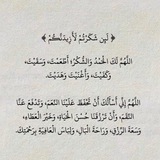 ﴿ لَئِن شَكَرْتُمْ لَأَزِيدَنَّكُمْ ﴾
اللَّهُمَّ لَكَ الْحَمْدُ وَالشُّكْرُ؛ أَطْعَمْتَ، وَسَقَيْتَ،
وَكَفَيْتَ، وَأَغْنَيْتَ وَهَدَيْتَ.
اللَّهُمَّ إِنِّي أَسْأَلُكَ أَنْ تَحْفَظَ عَلَيْنَا النِّعَمَ، وَتَدْفَعَ عَنَّا
النِّقَمَ، وَأَنْ تَرْزُقَنَا حُسْنَ الْحَيَاةِ، وَخَيْرَ الْعَطَاءِ،
وَسَعَةَ الرِّزْقِ، وَرَاحَةَ الْبَالِ، وَلِبَاسَ الْعَافِيَةِ بِرَحْمَتِكَ.